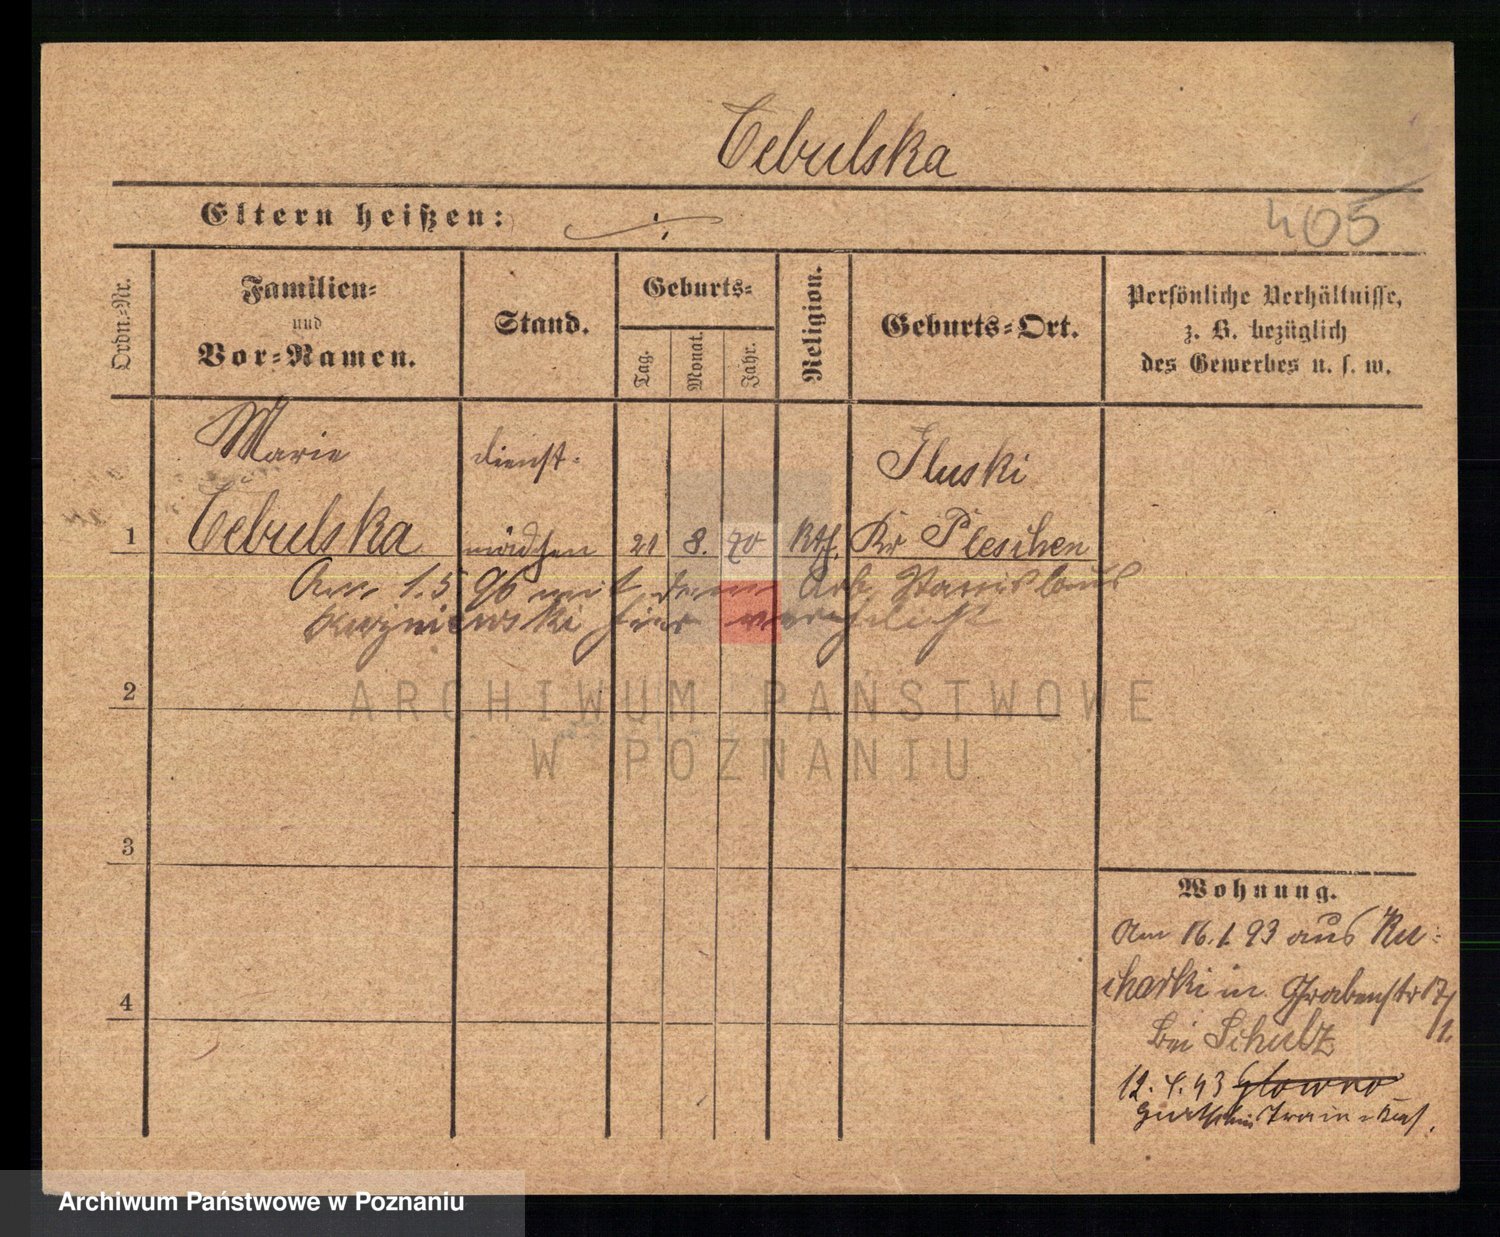 Cebulska
Eltern heißen:
405
Ordn.-Nr.
Familien-
und
Vor-Namen.
Stand.
Geburts-
Tag.
Monat.
Jahr.
Religion.
Geburts-Ort.
Persönliche Verhältnisse,
z. B. bezüglich
des Gewerbes u. s. w.
Marie
dienst-
Gluski
1
Cebulska
mädchen
21
8.
70
Kth.
Kr Pleschen
Am 1.5 96 mit dem Arb. Stanislaus
Kuzniewski hier verehelicht
2
ARCHIWUM PAŃSTWOWE
W POZNANIU
3
Wohnung.
Am 16.1.93 aus Ru-
charki in Grabenstr 17/
4
bei Schulz
11.
12. 4. 93 Glowno
Train
Archiwum Państwowe w Poznaniu